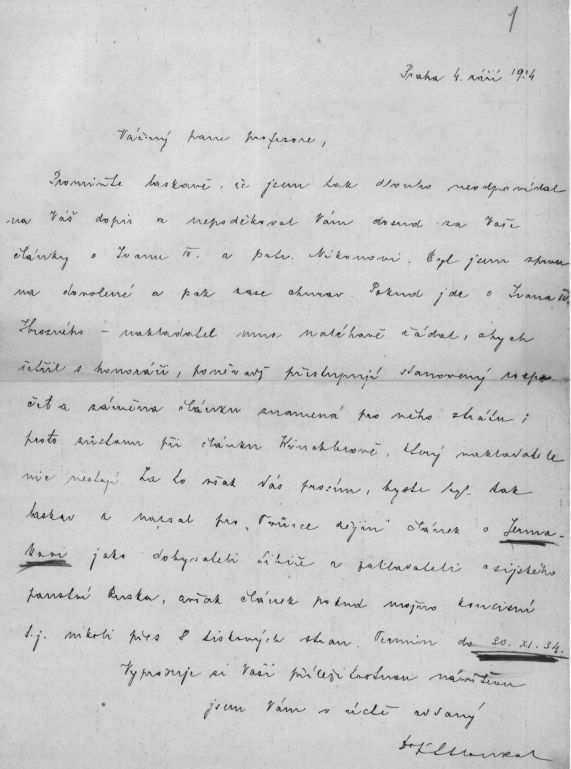 1
Praha 4. září 1934
Vážený pane profesore,
Promiňte laskavě, že jsem tak dlouho neodpovídal
na Váš dopis a nepoděkoval Vám dosud za Vaše
články o Ivanu IV. a patr. Nikonovi. Byl jsem zprvu
na dovolené a pak zase churav. Pokud jde o Ivana IV.
Hrozného – nakladatel mne naléhavě žádal, abych
šetřil s honoráři, poněvadž přestupuji stanovený rozpo-
čet a záměna článku znamená pro něho ztrátu;
proto zůstanu při článku, který nakladatele
nic nestojí. Za to však Vás prosím, byste byl tak
laskav a napsal pro „Tvůrce dějin" článek o Jerma-
kovi jako dobyvateli Sibiře a zakladateli asijského
panství Ruska, avšak článek pokud možno koncisní
t.j. nikoli přes 8 tiskových stran. Termin do 30. XI. 34.
Vyprošuje si Vaši příležitostnou návštěvu
jsem Vám v úctě oddaný
Dr